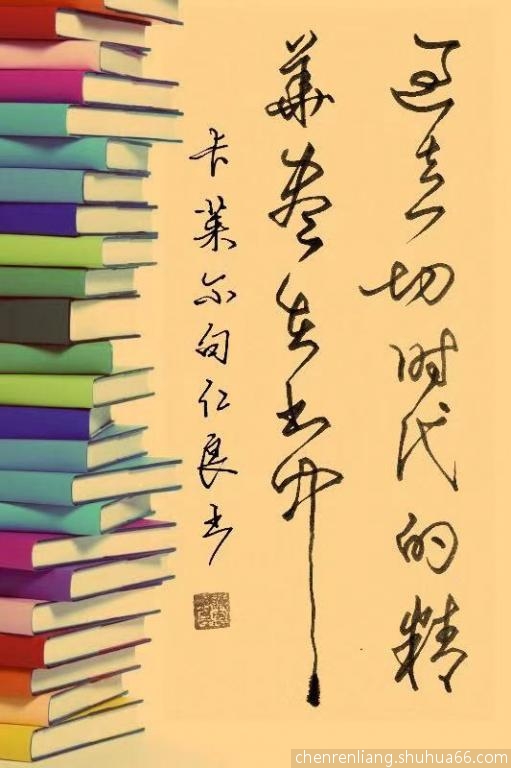 过去一切时代的精
華尽在书中
卡莱尔句仁良书
chenrenliang.shuhua66.com